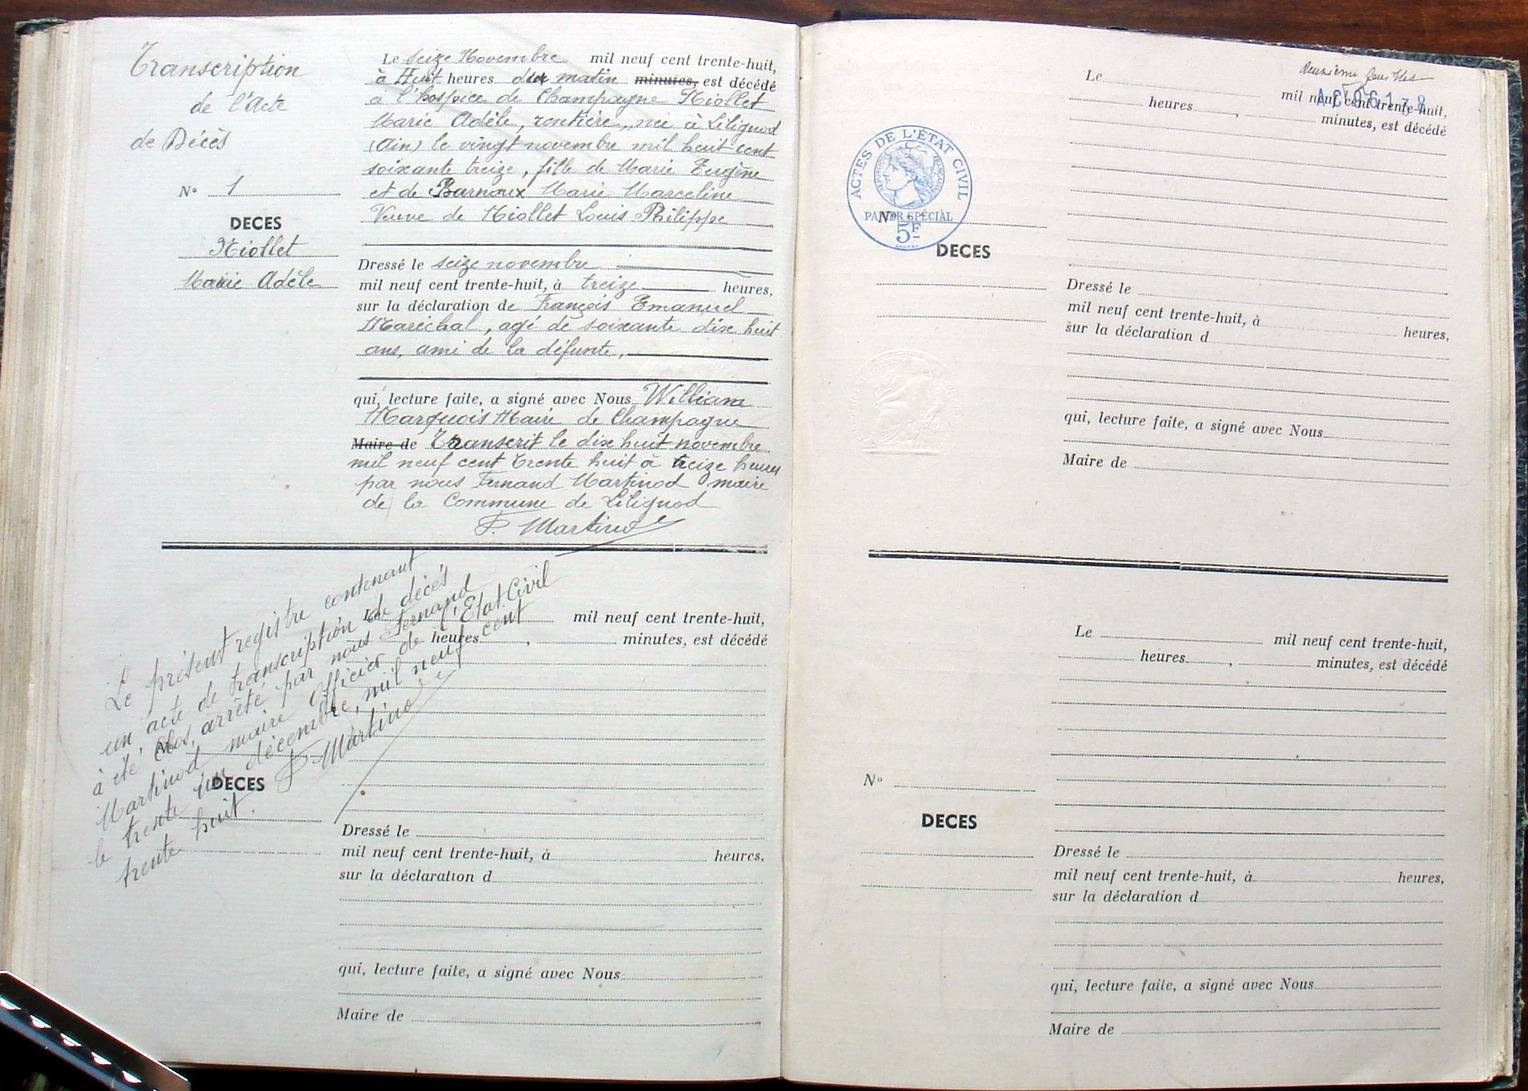 Transcription
de l'Acte
de Décès
N° 1
DECES
Niollet
Marie Adèle
Le seize Novembre mil neuf cent trente-huit,
à Huit heures du matin minutes, est décédé
à l'hospice de Champagne Niollet
Marie Adèle, rentière, née à Lilignod
(Ain) le vingt novembre mil huit cent
soixante treize, fille de Marie Eugène
et de Barnoux Marie Marceline
Veuve de Niollet Louis Philippe
Dressé le seize novembre
mil neuf cent trente-huit, à treize heures,
sur la déclaration de François Emanuel
Maréchal, agé de soixante dix huit
ans, ami de la défunte,
qui, lecture faite, a signé avec Nous William
Marquois Maire de Champagne
Maire de Transcrit le dix huit novembre
mil neuf cent trente huit à treize heures
par nous Fernand Martinod maire
de la Commune de Lilignod
F. Martinod
Le présent registre contenant
un acte de transcription de décès
à été clos, arrêté par nous Fernand
Martinod maire Officier de l'Etat-Civil
le trente un décembre, mil neuf cent
trente huit.
F. Martinod
Le mil neuf cent trente-huit,
heures , minutes, est décédé
DECES
Dressé le
mil neuf cent trente-huit, à heures,
sur la déclaration d
qui, lecture faite, a signé avec Nous
Maire de
deuxième
AC96178
ACTES DE L'ÉTAT CIVIL
PAPIER SPÉCIAL
5F
Le mil neuf cent trente-huit,
heures , minutes, est décédé
N°
DECES
Dressé le
mil neuf cent trente-huit, à heures,
sur la déclaration d
qui, lecture faite, a signé avec Nous
Maire de
Le mil neuf cent trente-huit,
heures , minutes, est décédé
N°
DECES
Dressé le
mil neuf cent trente-huit, à heures,
sur la déclaration d
qui, lecture faite, a signé avec Nous
Maire de